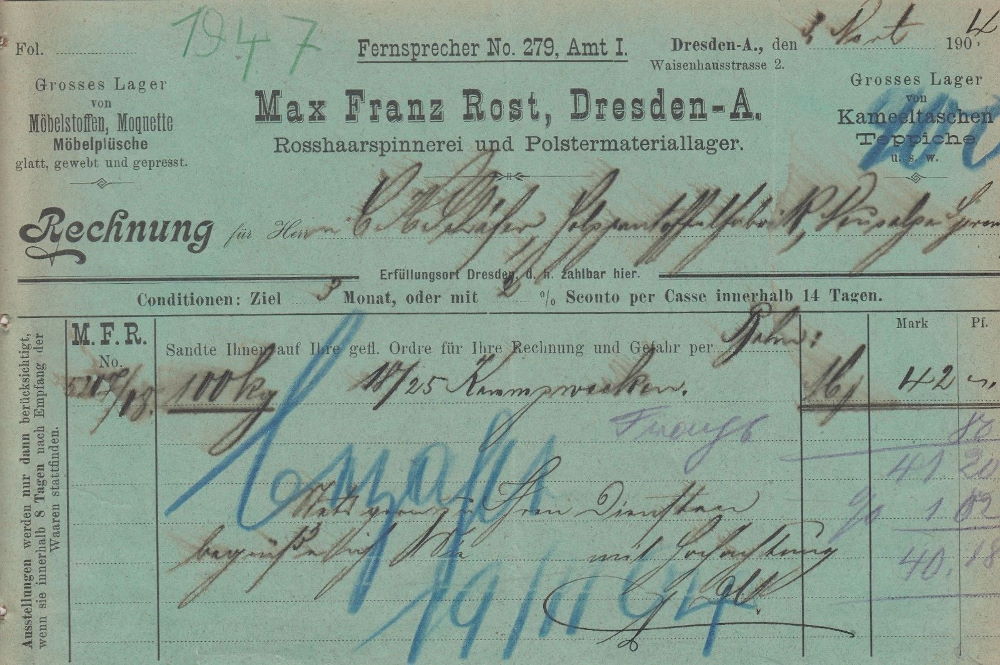 1947
Fol.
Fernsprecher No. 279, Amt I.
Dresden-A., den 190 4
Waisenhausstrasse 2.
Grosses Lager
von
Möbelstoffen, Moquette
Möbelplüsche
glatt, gewebt und gepresst.
Max Franz Rost, Dresden-A.
Rosshaarspinnerei und Polstermateriallager.
Grosses Lager
von
Kameeltaschen
Teppiche
u. s. w.
Rechnung für Herrn Holzpantoffelfabrik,
Erfüllungsort Dresden, d. h. zahlbar hier.
Conditionen: Ziel 3 Monat, oder mit 2 % Sconto per Casse innerhalb 14 Tagen.
Ausstellungen werden nur dann berücksichtigt,
wenn sie innerhalb 8 Tagen nach Empfang der
Waaren stattfinden.
M. F. R.
No.
Mark Pf.
Sandte Ihnen auf Ihre gefl. Ordre für Ihre Rechnung und Gefahr per Bahn:
100 kg 18/25 42 —
80
41 20
1 02
40.18
Ihren Diensten
mit Hochachtung